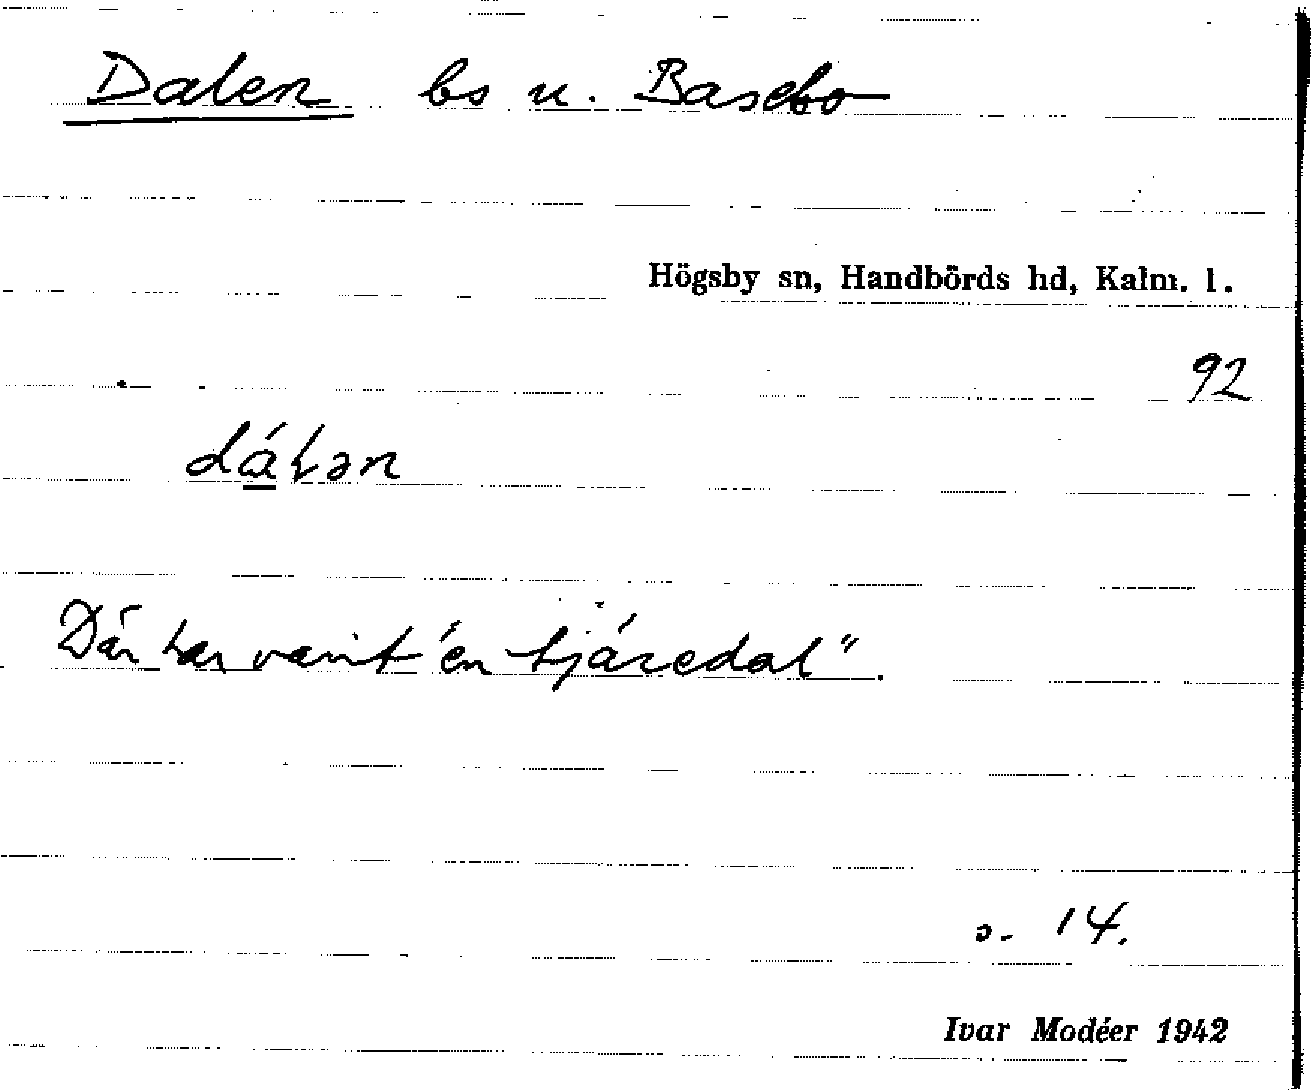 Dalen bs u. Basebo
Högsby sn, Handbörds hd, Kalm. l.
92
dá̱lən
Där har varit "en tjäredal".
s. 14.
Ivar Modéer 1942